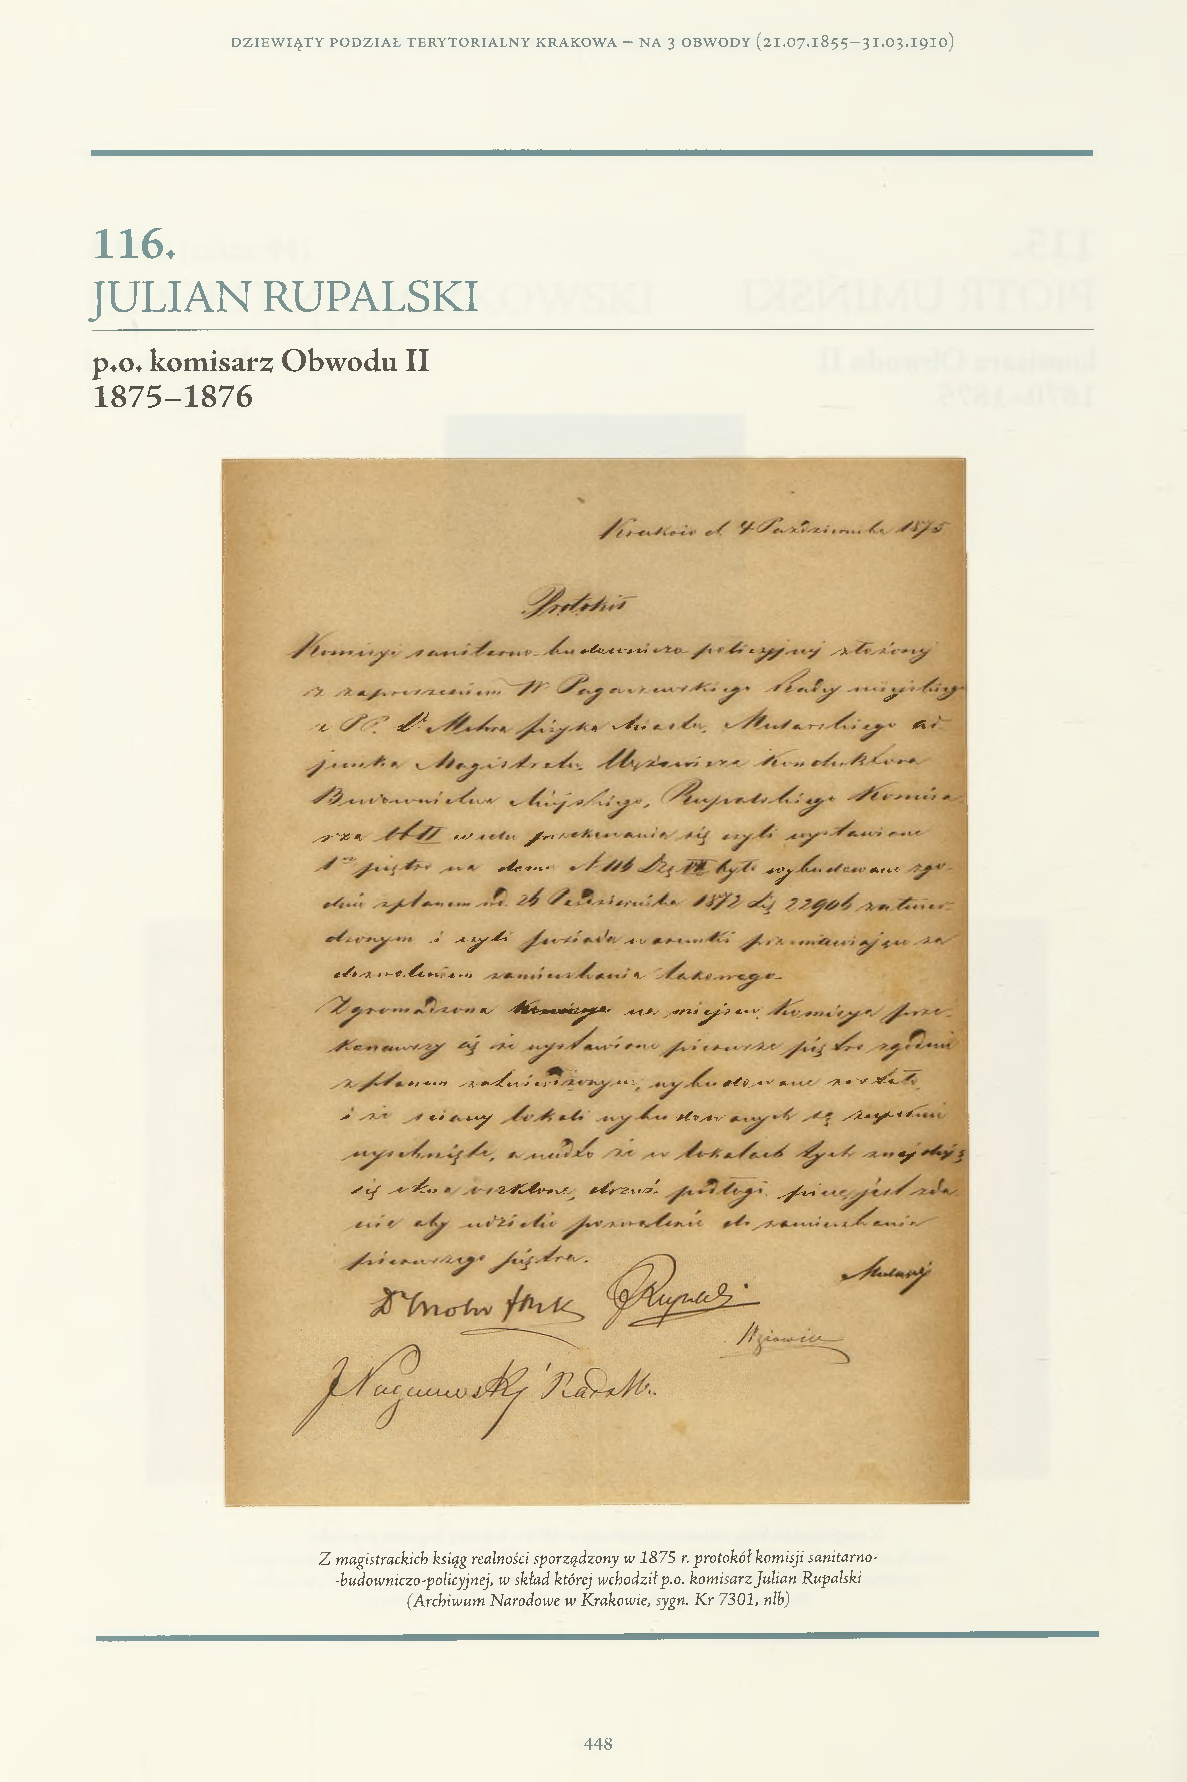 DZIEWIĄTY PODZIAŁ TERYTORIALNY KRAKOWA – NA 3 OBWODY (21.07.1855–31.03.1910)
116.
JULIAN RUPALSKI
p.o. komisarz Obwodu II
1875–1876
Kraków d. 4 Października 1875
Protokół
Komisyi sanitarno-budowniczo policyjnej złożonej
z zaproszeniem W Pagaczewskiego Radcy miejskiego
z PP. Dr Mohra fizyka Miasta, ad-
junkta Magistratu, Konduktora
Budownictwa Miejskiego, Rupalskiego Komisa-
rza II w celu przekonania się czyli wystawione
1sze piętro na domu N 116 Dz VIII było wybudowane zgo-
dnie z planem od. 26 Października 1872 L 22906 zatwier-
dzonym i czyli posiada warunki przemawiające za
dozwoleniem zamieszkania takowego.
Zgromadzona na miejscu Komisya prze-
konawszy się że wystawione pierwsze piętro zgodnie
z planem zatwierdzonym, wybudowane zostało
i że ściany lokali wybudowanych są zupełnie
wyschnięte, a nadto że w lokalach tych znajdują
się okna oszklone, drzwi, podłogi, piece, jest zda-
nie aby udzielić pozwolenie do zamieszkania
pierwszego piętra.
Dr Mohr
Rupalski
Pagaczewski
Z magistrackich ksiąg realności sporządzony w 1875 r. protokół komisji sanitarno-
-budowniczo-policyjnej, w skład której wchodził p.o. komisarz Julian Rupalski
(Archiwum Narodowe w Krakowie, sygn. Kr 7301, nlb)
448